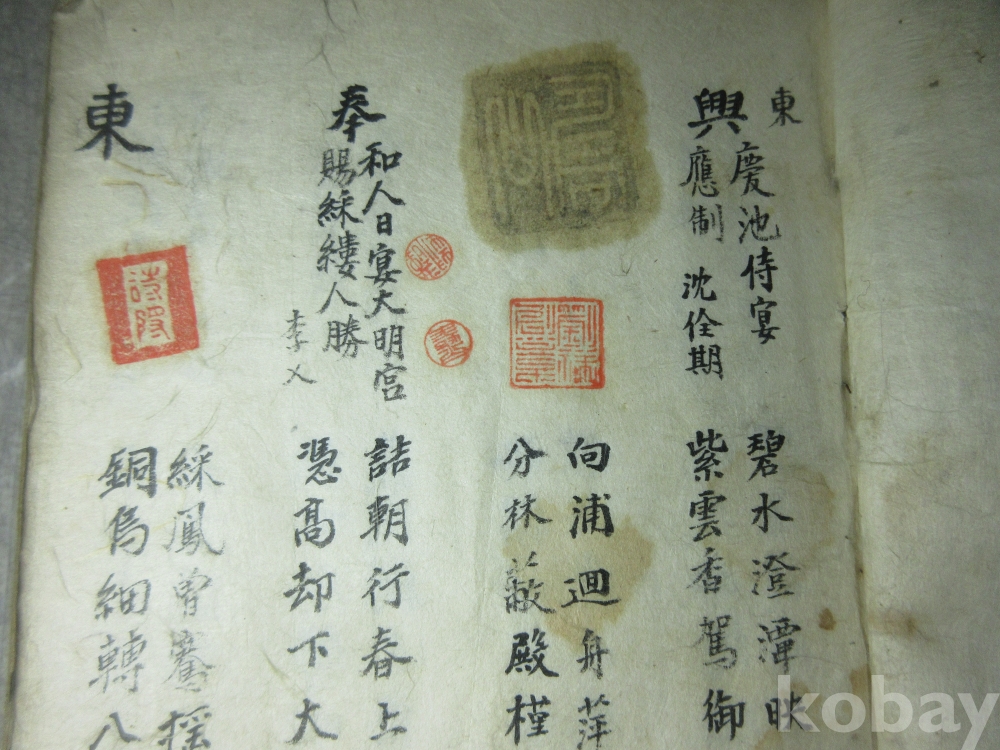 東
興慶池侍宴
應制 沈佺期
碧水澄潭映
紫雲香駕御
向浦迴舟萍
分林蔽殿槿
奉和人日宴大明宮
賜綵縷人勝
李乂
詰朝行春上
憑高却下大
東
綵鳳曾鶱搖
銅烏細轉八
kobay